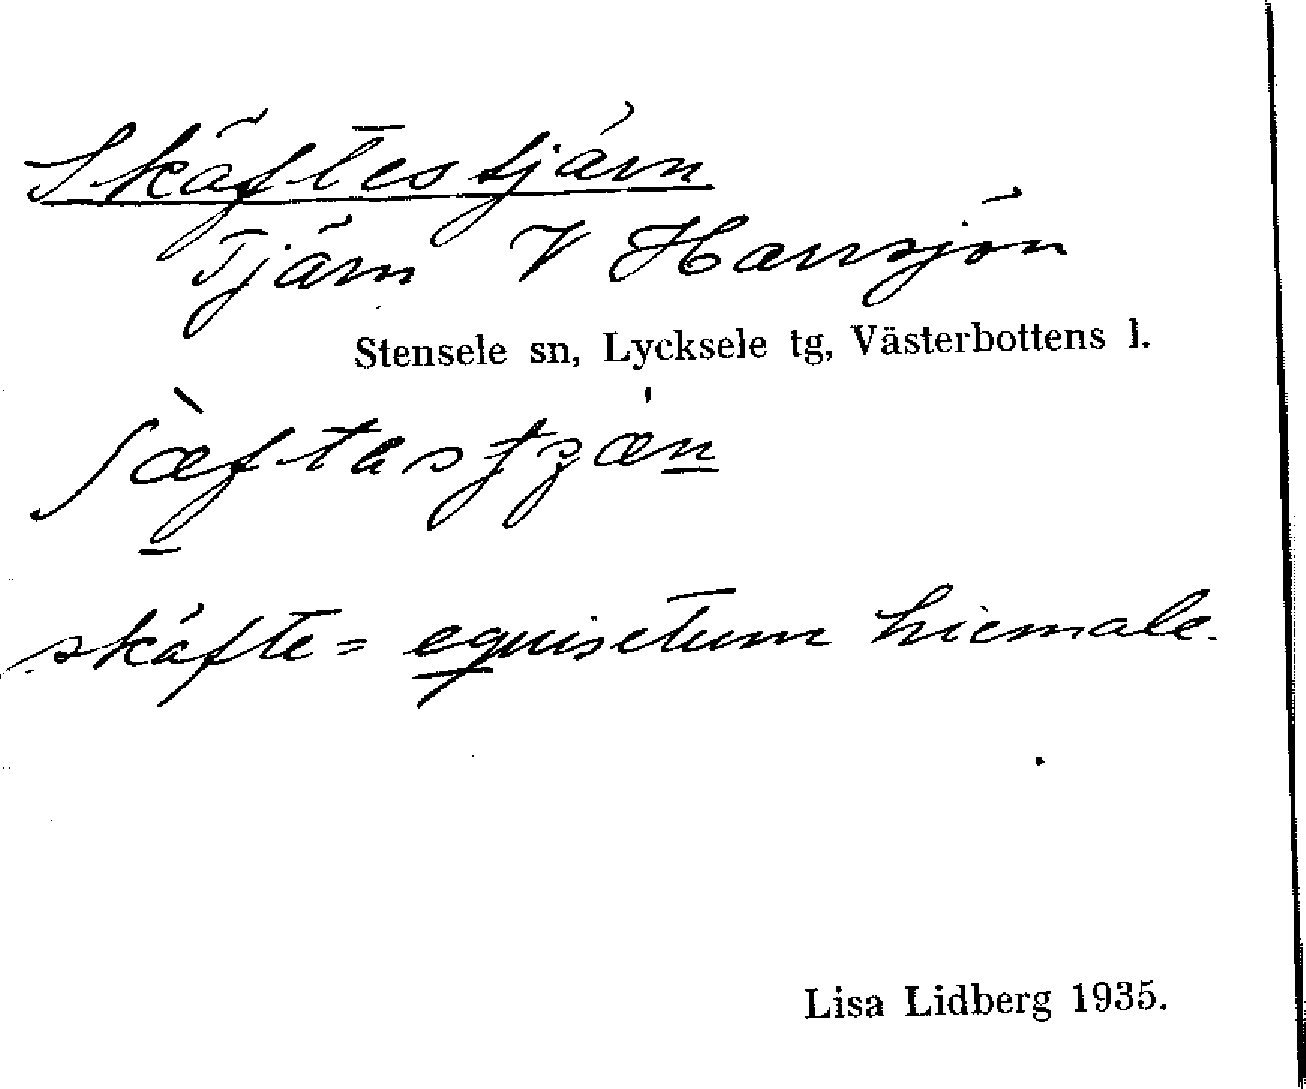 Skäftestjärn
Tjärn V Harrsjön
Stensele sn, Lycksele tg, Västerbottens l.
skäfte = equisetum hiemale.
Lisa Lidberg 1935.